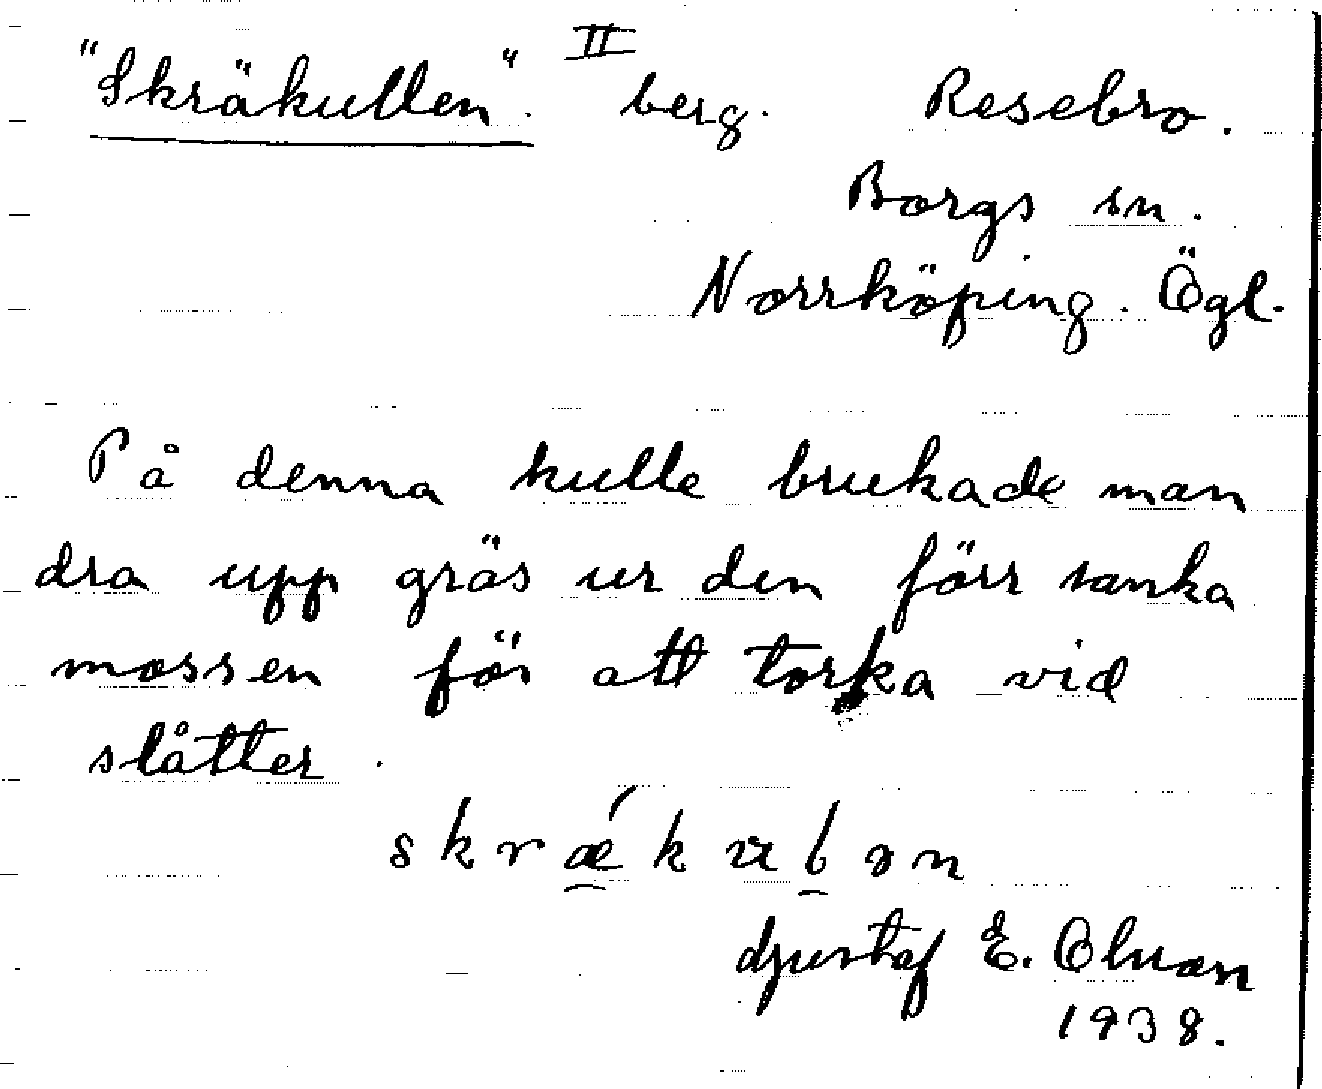 "Skräkullen". II berg. Resebro.
Borgs sn.
Norrköping. Ögl.
På denna kulle brukade man
dra upp gräs ur den förr sanka
mossen för att torka vid
slåtter.
Gustaf E. Olsson
1938.